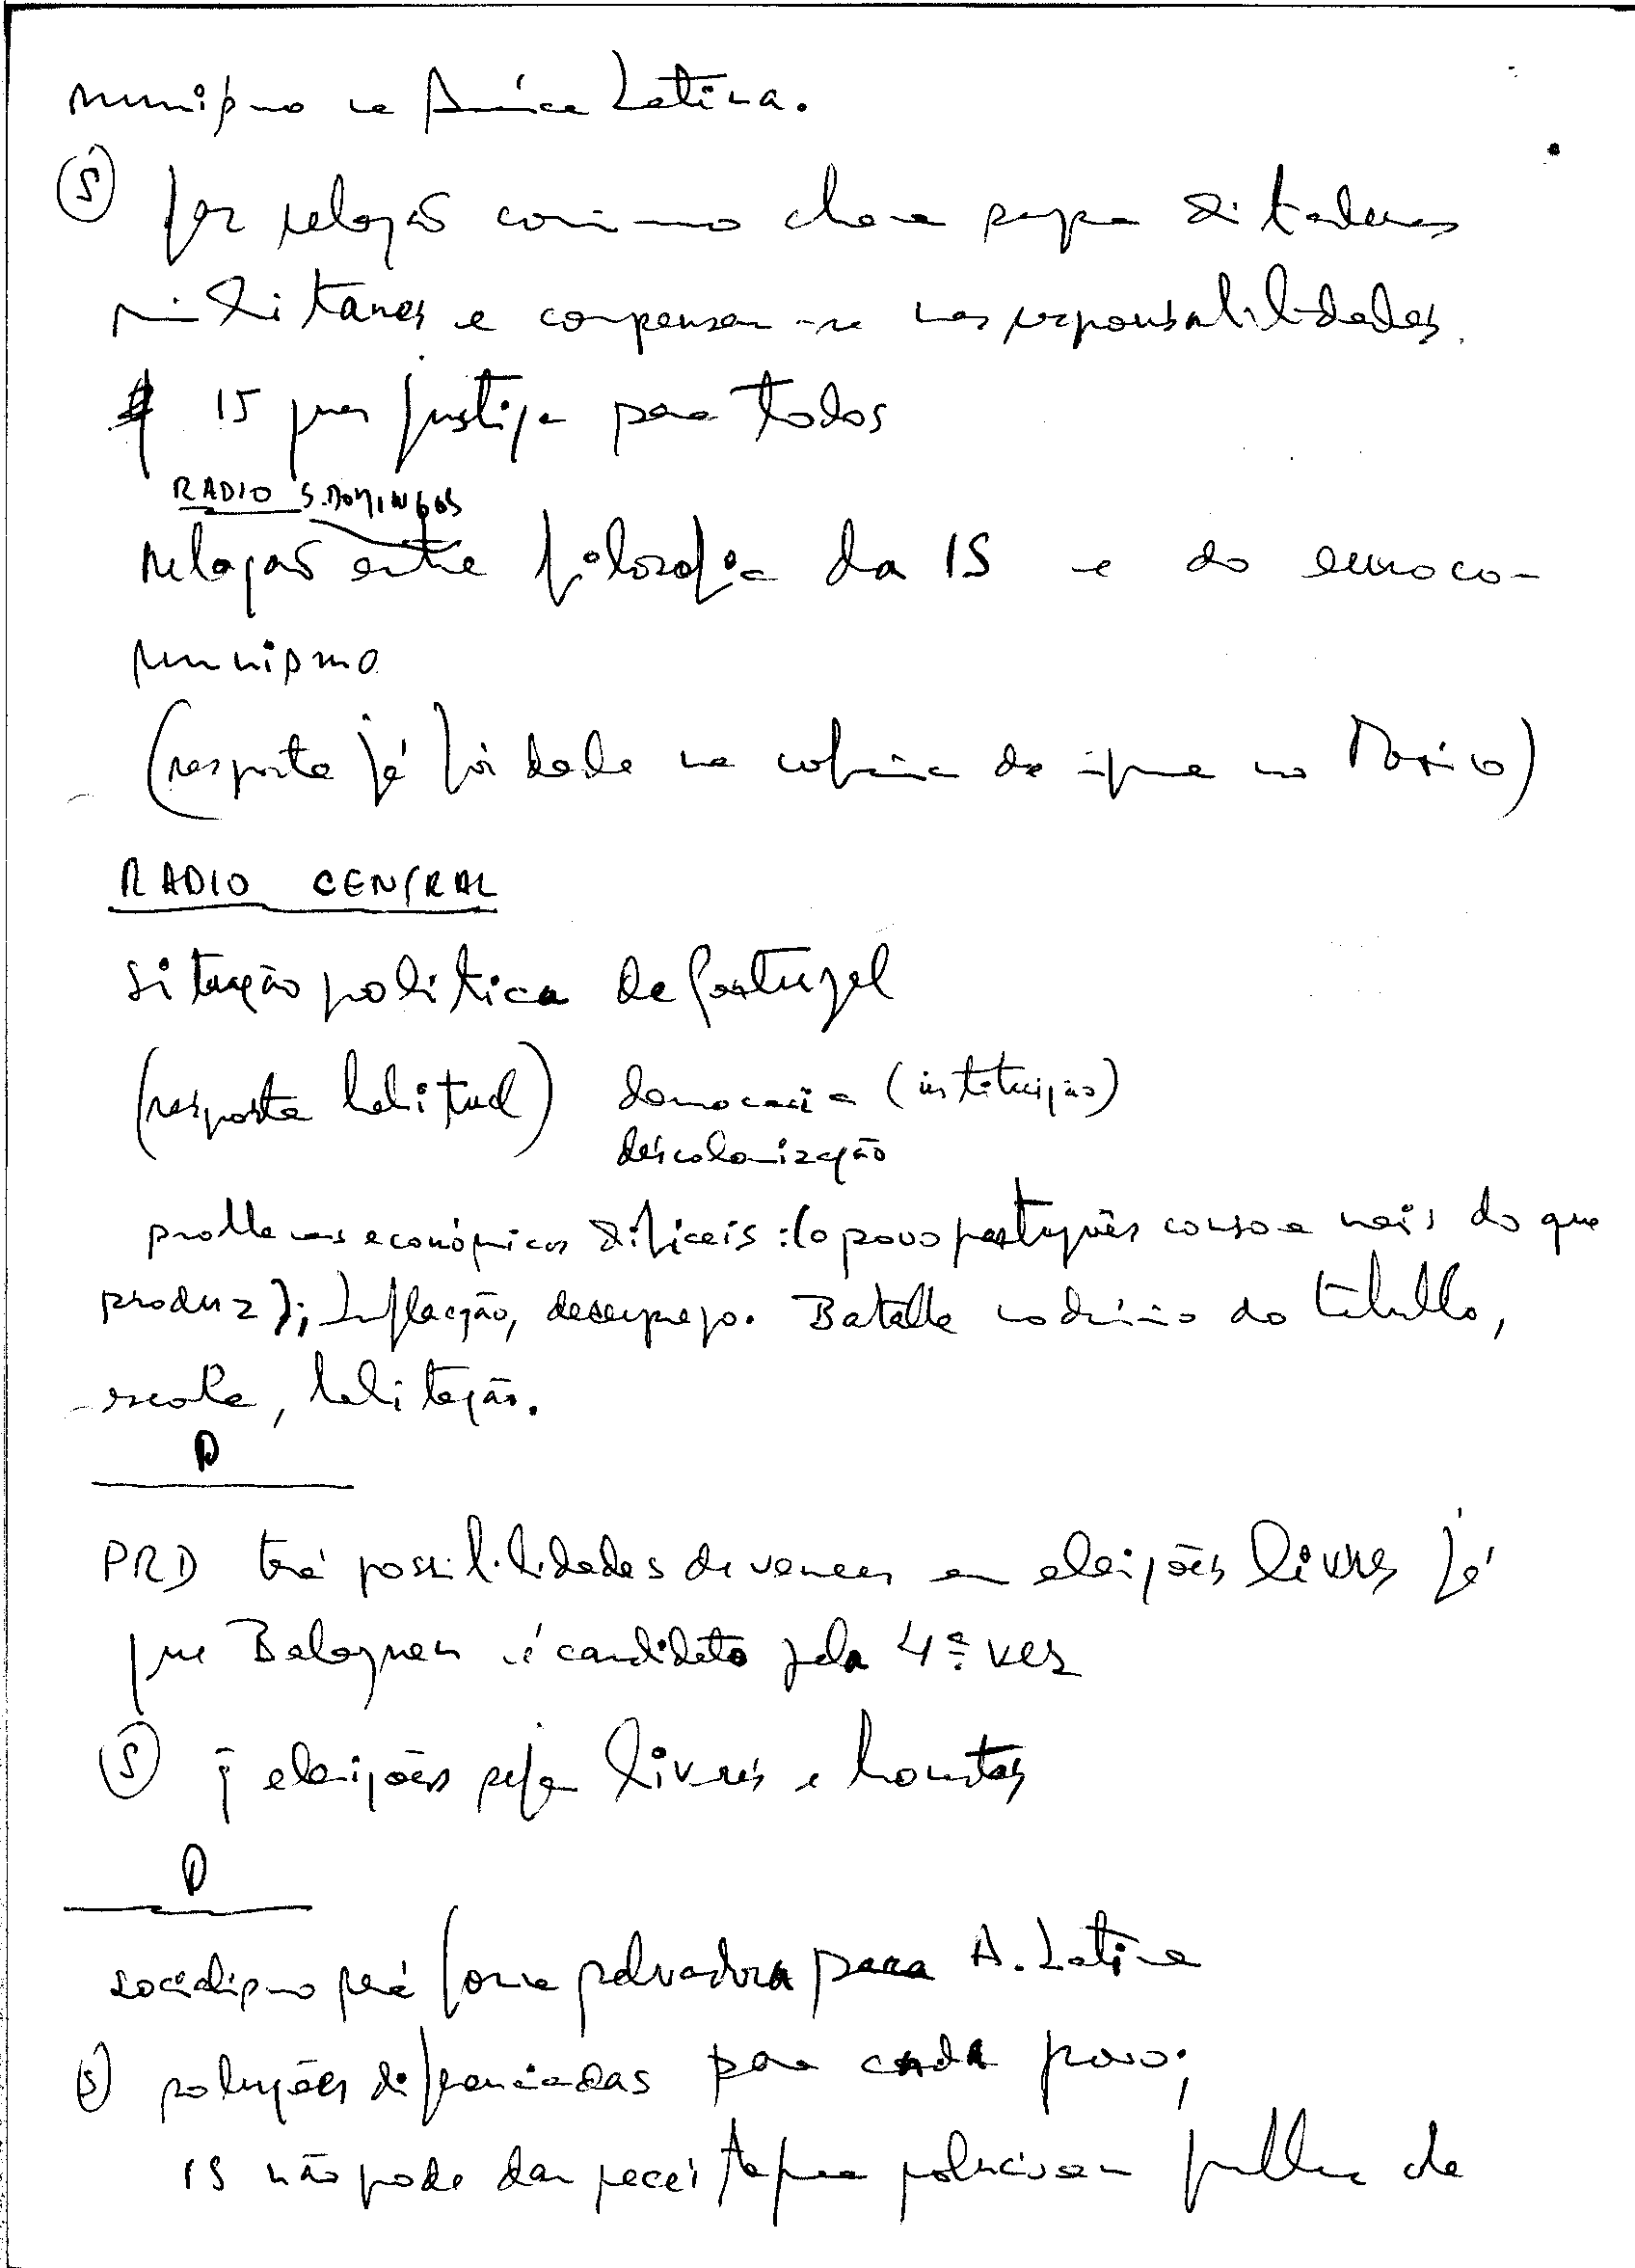 munismo na América Latina.
(S) faz relação comunismo chama sempre ditaduras
militares e compensam-se nas responsabilidades.
IS quer justiça para todos
RADIO S. DOMINGOS
relação entre filosofia da IS e do euroco-
munismo
(resposta já foi dada na conferência de imprensa no México)
RADIO CENTRAL
situação política de Portugal
(resposta habitual) democracia (instituição)
descolonização
problemas económicos difíceis: (o povo português consome mais do que
produz); Inflacção, desemprego. Batalha do trabalho,
escola, habitação.
D
PRD terá possibilidades de vencer em eleições livres já
que Balaguer é candidato pela 4ª vez
(S) q̃ eleições sejam livres e honestas
D
socialismo será forma salvadora para A. Latina
(S) soluções diferenciadas para cada povo;
IS não pode dar receita para solucionar problemas da